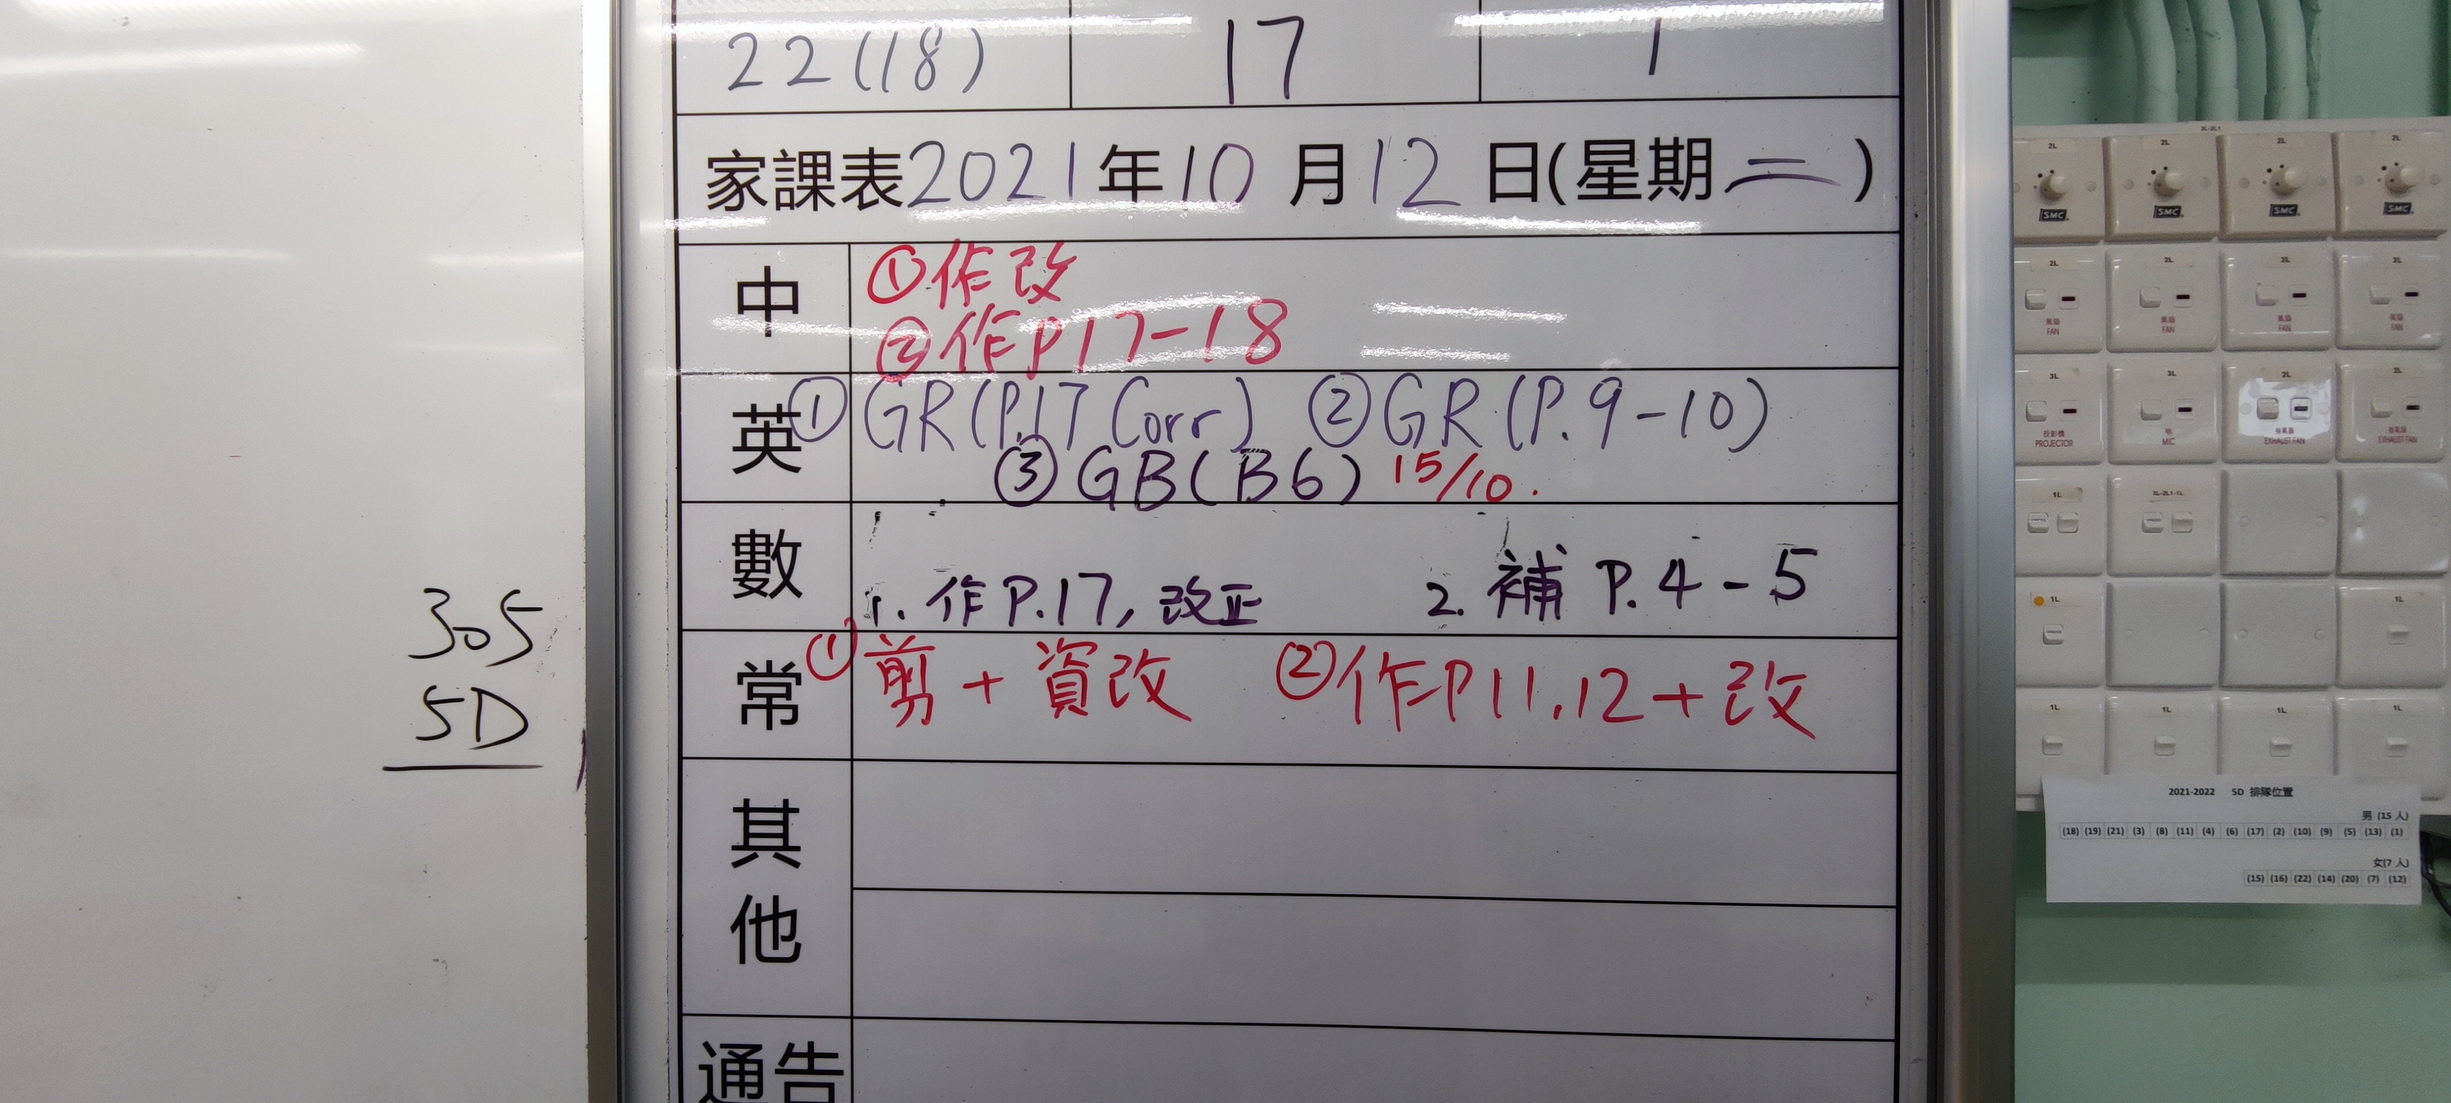 22(18) 17 1
家課表2021年10月12日(星期二)
中 ①作改
②作P17-18
英 ①GR(P.17 Corr) ②GR(P.9-10)
③GB(B6) 15/10.
數 1. 作P.17, 改正 2. 補 P.4-5
常 ①剪+資改 ②作P11.12+改
其他
通告
305
5D
2L-2L1
2L 2L 2L 2L
SMC SMC SMC SMC
2L 2L 2L 2L
風扇 風扇 風扇 風扇
FAN FAN FAN FAN
3L 3L 2L 2L
投影機 咪 抽氣扇 抽氣扇
PROJECTOR MIC EXHAUST FAN EXHAUST FAN
1L 2L-2L1-1L
1L 1L
1L 1L 1L 1L
2021-2022 5D 排隊位置
男 (15 人)
(18) (19) (21) (3) (8) (11) (4) (6) (17) (2) (10) (9) (5) (13) (1)
女(7 人)
(15) (16) (22) (14) (20) (7) (12)